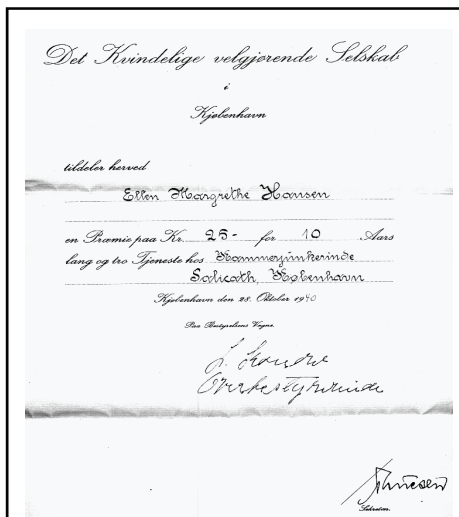 Det Kvindelige velgjørende Selskab
i
Kjøbenhavn
tildeler herved
Ellen Margrethe Hansen
en Præmie paa Kr. 25- for 10 Aars
lang og tro Tjeneste hos Kammerjunkerinde
København
Kjøbenhavn den 28. Oktober 1940
Paa Bestyrelsens Vegne.
Sekretær.